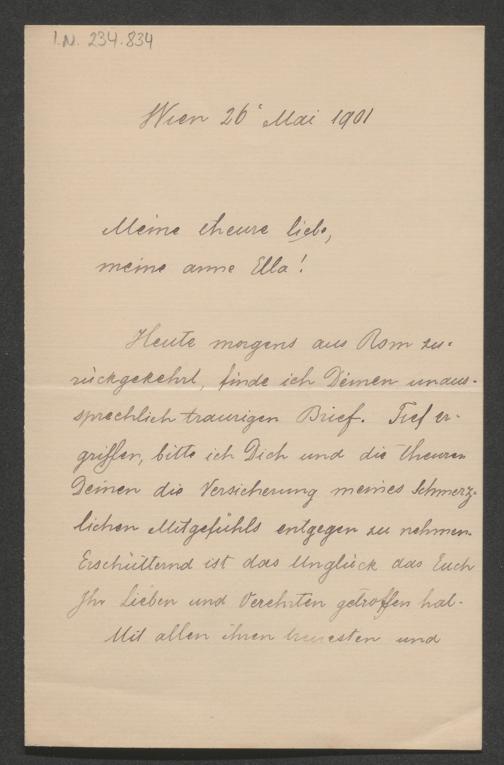 I.N. 234.834
Wien 26' Mai 1901
Meine theure liebe,
meine arme Ella!
Heute morgens aus Rom zu-
rückgekehrt, finde ich Deinen unaus-
sprechlich traurigen Brief. Tief er-
griffen, bitte ich Dich und die theuren
Deinen die Versicherung meines schmerz-
lichen Mitgefühls entgegen zu nehmen.
Erschütternd ist das Unglück das Euch
Ihr Lieben und Verehrten getroffen hat.
Mit allen ihren treuesten und